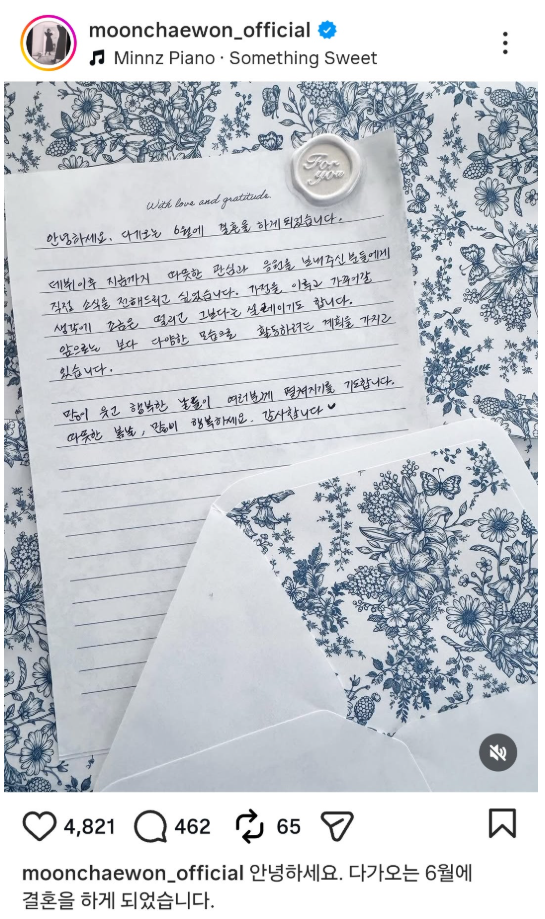 moonchaewon_official
Minnz Piano · Something Sweet
For
you
With love and gratitude.
안녕하세요. 다가오는 6월에 결혼을 하게 되었습니다.
데뷔이후 지금까지 따뜻한 관심과 응원을 보내주신 분들에게
직접 소식을 전해드리고 싶었습니다. 가정을 이루고 가꾸어갈
생각에 조금은 떨리고 그보다는 설레이기도 합니다.
앞으로는 보다 다양한 모습으로 활동하려는 계획을 가지고
있습니다.
많이 웃고 행복한 날들이 여러분께 펼쳐지기를 기도합니다.
따뜻한 봄날, 많이 행복하세요. 감사합니다 ♥
4,821 462 65
moonchaewon_official 안녕하세요. 다가오는 6월에
결혼을 하게 되었습니다.